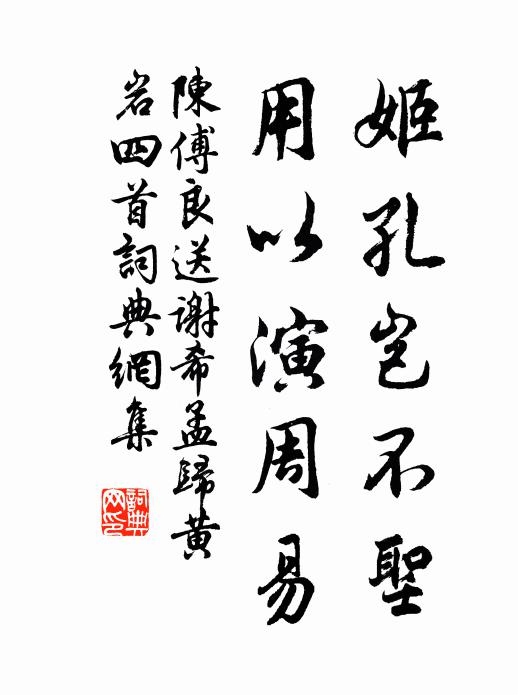 姬孔岂不聖
用以演周易
陳傅良送謝希孟歸黃
岩四首詞典網集
詞典
网印